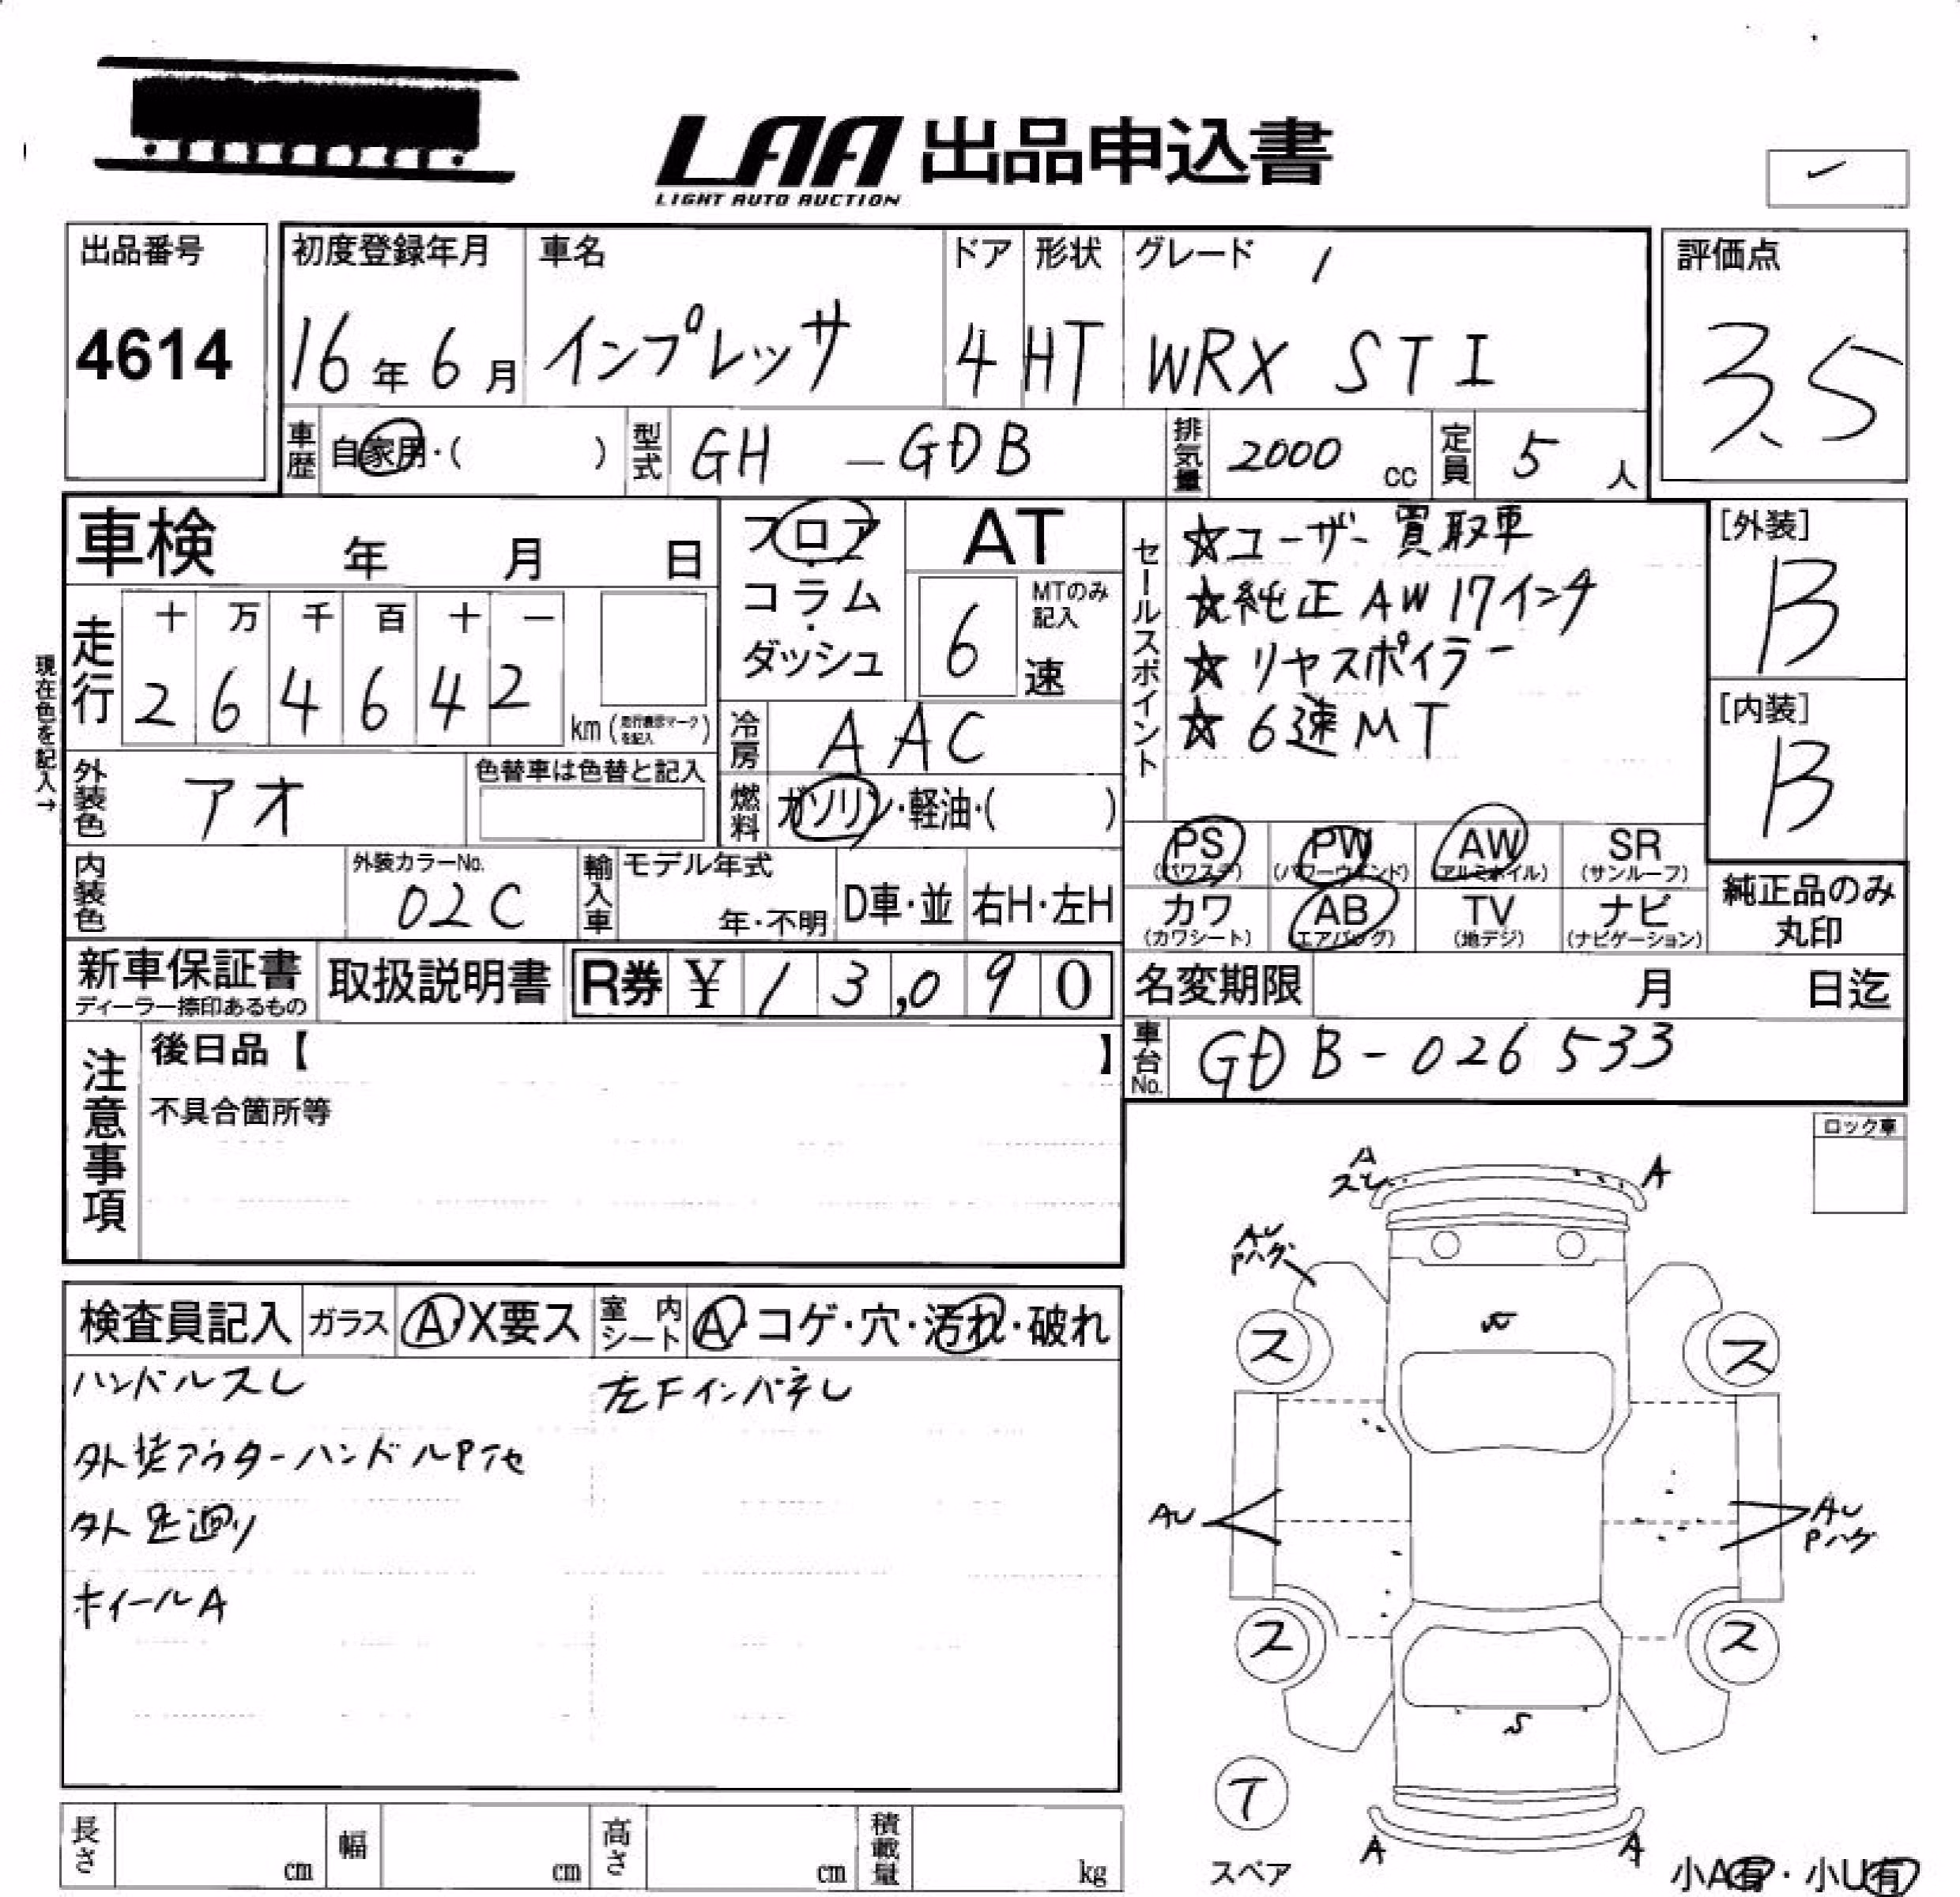 LAA 出品申込書
LIGHT AUTO AUCTION
出品番号
4614
初度登録年月
16年6月
車名
インプレッサ
ドア
4
形状
HT
グレード
WRX STI
評価点
3.5
車歴 自家用・( )
型式 GH - GDB
排気量 2000 cc
定員 5 人
車検 年 月 日
現在色を記入→
走行
十 万 千 百 十 一
2 6 4 6 4 2
km(走行表示マークを記入)
フロア・コラム・ダッシュ
AT
6 速
MTのみ記入
冷房 AAC
燃料 ガソリン・軽油・( )
セールスポイント
☆ユーザー買取車
☆純正AW17インチ
☆リヤスポイラー
☆6速MT
[外装]
B
[内装]
B
外装色 アオ
色替車は色替と記入
内装色
外装カラーNo.
02C
輸入車
モデル年式
年・不明
D車・並
右H・左H
PS (パワステ)
PW (パワーウインド)
AW (アルミホイル)
SR (サンルーフ)
カワ (カワシート)
AB (エアバッグ)
TV (地デジ)
ナビ (ナビゲーション)
純正品のみ
丸印
新車保証書
ディーラー捺印あるもの
取扱説明書
R券 ¥ 13,090
名変期限 月 日迄
車台No. GDB-026533
注意事項
後日品【 】
不具合箇所等
ロック車
検査員記入
ガラス A・X要ス
室内シート A・コゲ・穴・汚れ・破れ
ハンドルスレ
左Fインパネし
外装アウターハンドルPアセ
外足廻り
ホイールA
A
スレ
A
AU
Pハゲ
ス
ス
AU
AU
Pハゲ
ス
ス
S
T
スペア
A
A
小A有・小U有
長さ cm
幅 cm
高さ cm
積載量 kg